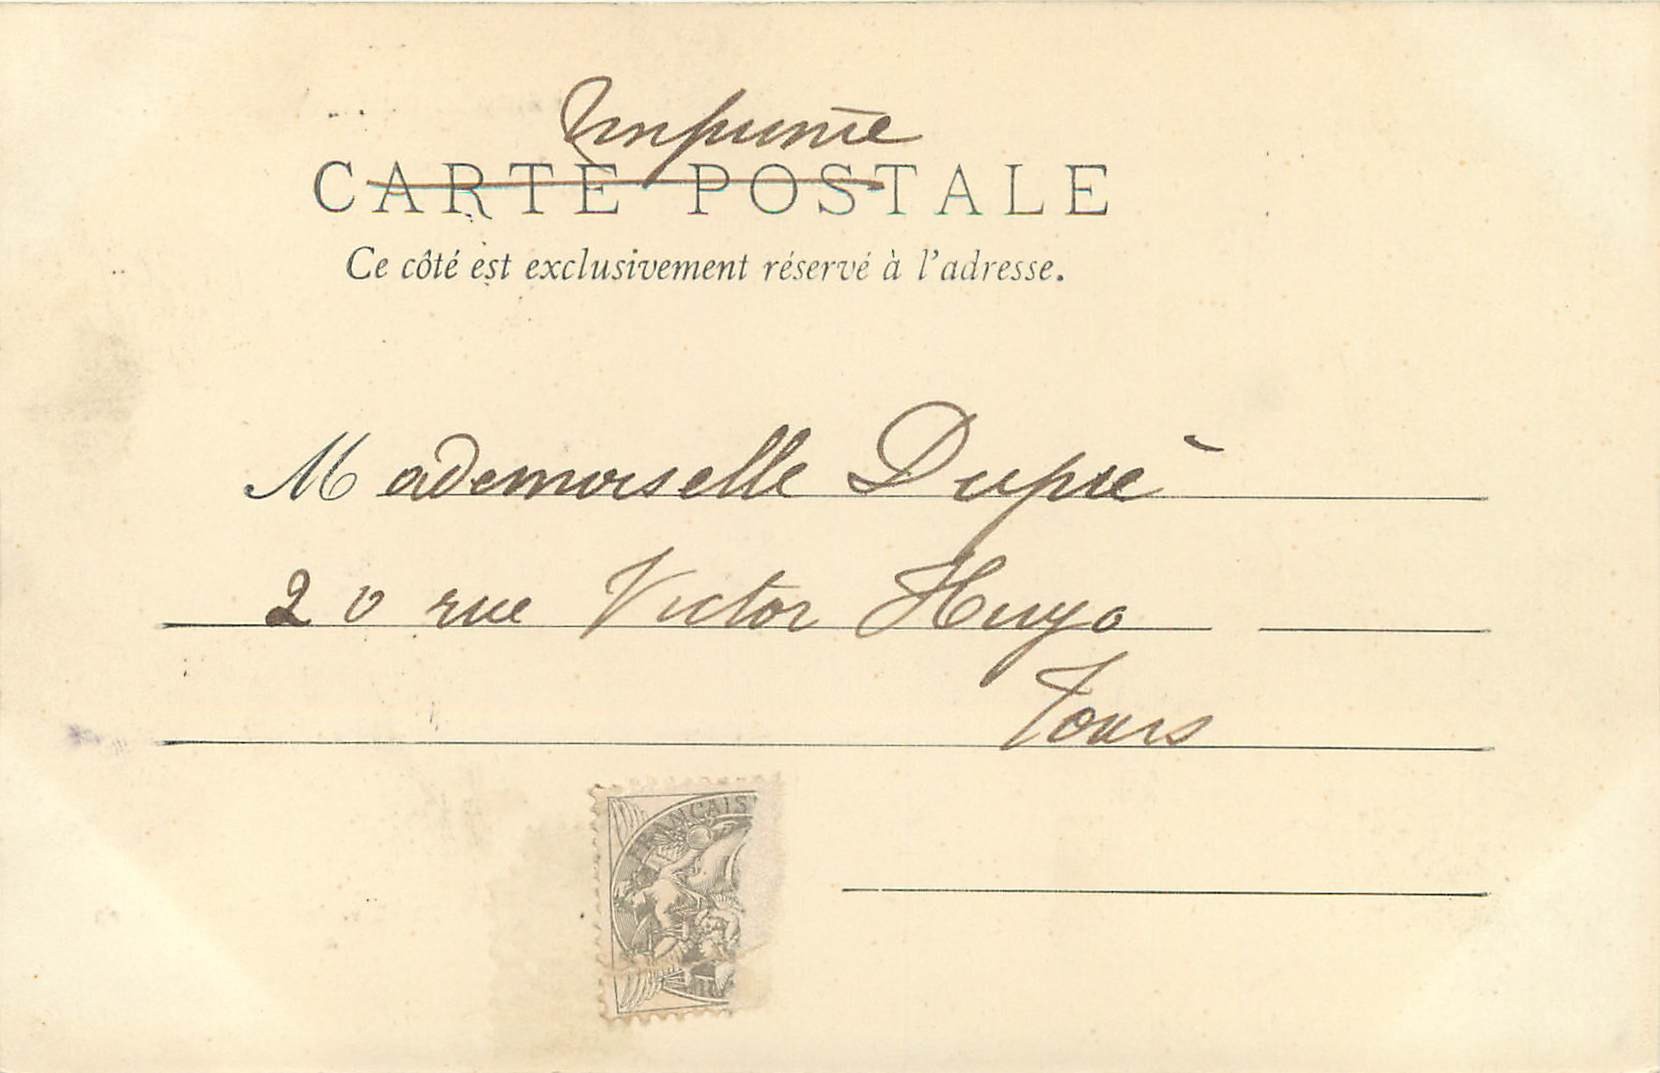 Imprimé
CARTE POSTALE
Ce côté est exclusivement réservé à l'adresse.
Mademoiselle Dupré
20 rue Victor Hugo
Tours
FRANÇAIS